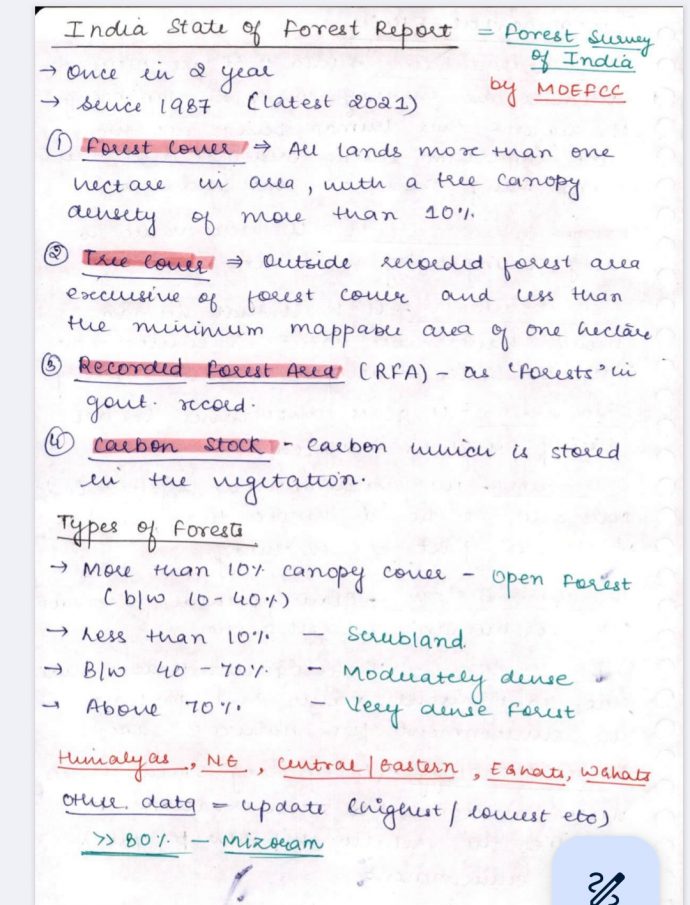 India State of Forest Report = Forest Survey of India
→ Once in 2 year by MOEFCC
→ Since 1987 (latest 2021)
① Forest cover ⇒ All lands more than one
hectare in area, with a tree canopy
density of more than 10%.
② Tree cover ⇒ Outside recorded forest area
exclusive of forest cover and less than
the minimum mappable area of one hectare
③ Recorded Forest Area (RFA) – as 'forests' in
govt. record.
④ Carbon Stock – Carbon which is stored
in the vegetation.
Types of Forests
→ More than 10% canopy cover – Open Forest
(b/w 10-40%)
→ Less than 10% – Scrubland
→ B/w 40 - 70% – Moduately dense
→ Above 70%. – Very dense Forest
Himalyas, NE, Central/Eastern, EGhats, WGhats
Other data = update (highest/lowest etc)
>> 80% – Mizoram